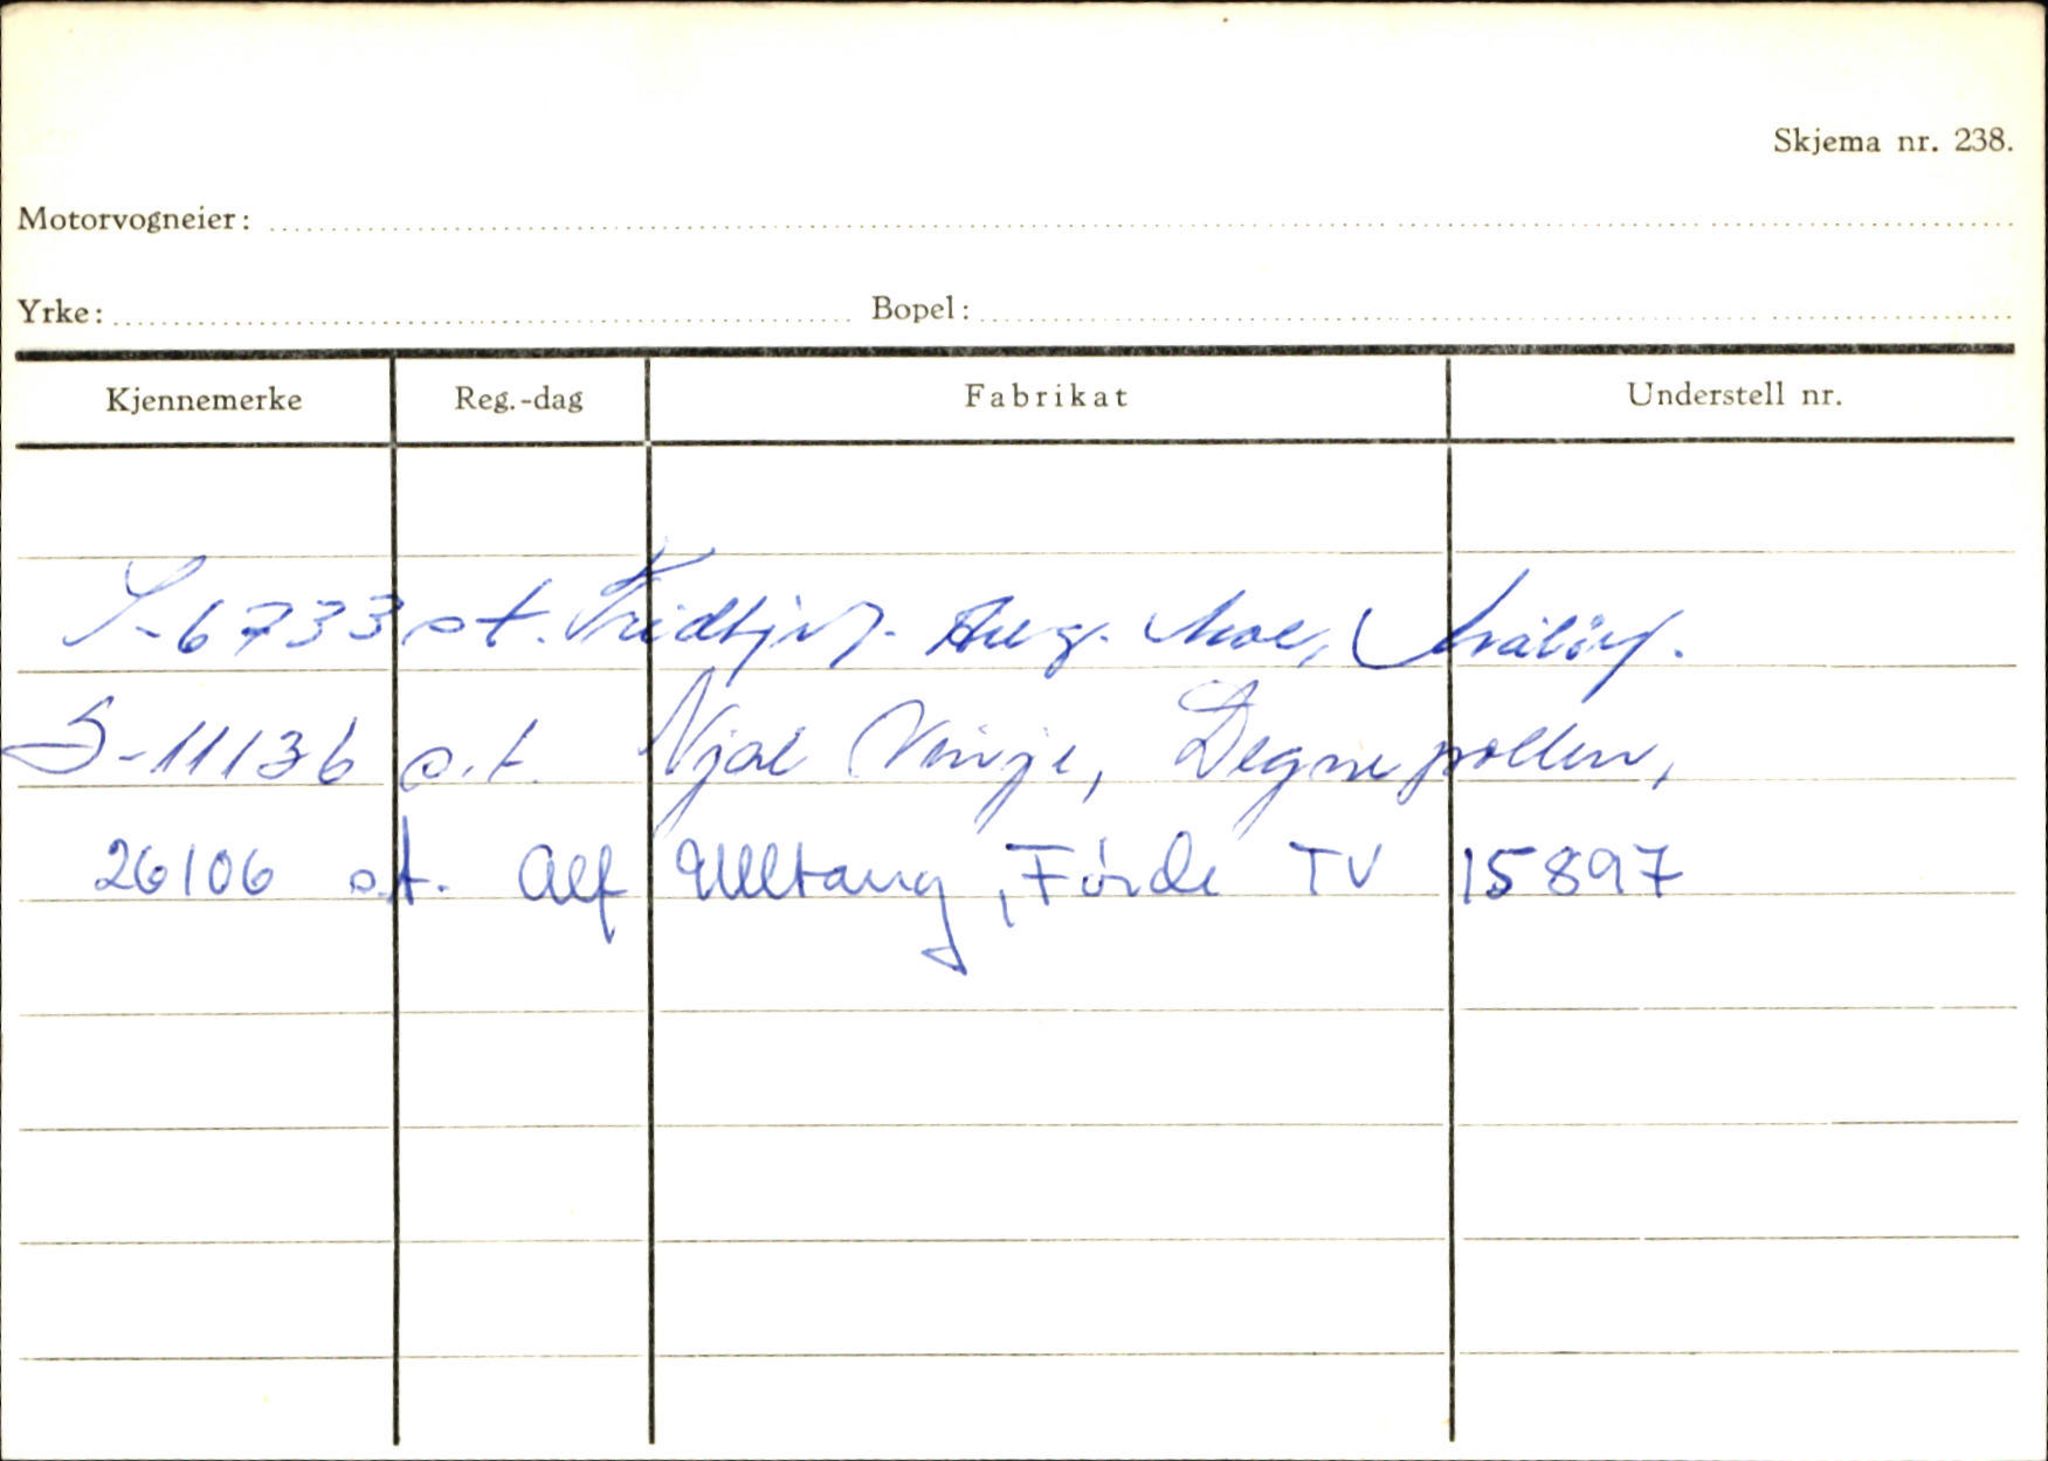 Skjema nr. 238.
Motorvogneier:
Yrke: Bopel:
Kjennemerke Reg.-dag Fabrikat Understell nr.
S-6733 o.t. Fridtjof Aug. Moe, Måløy.
S-11136 o.t. Njål Vinje, Degnepollen,
26106 o.t. Alf Ulltang, Førde TV 15897